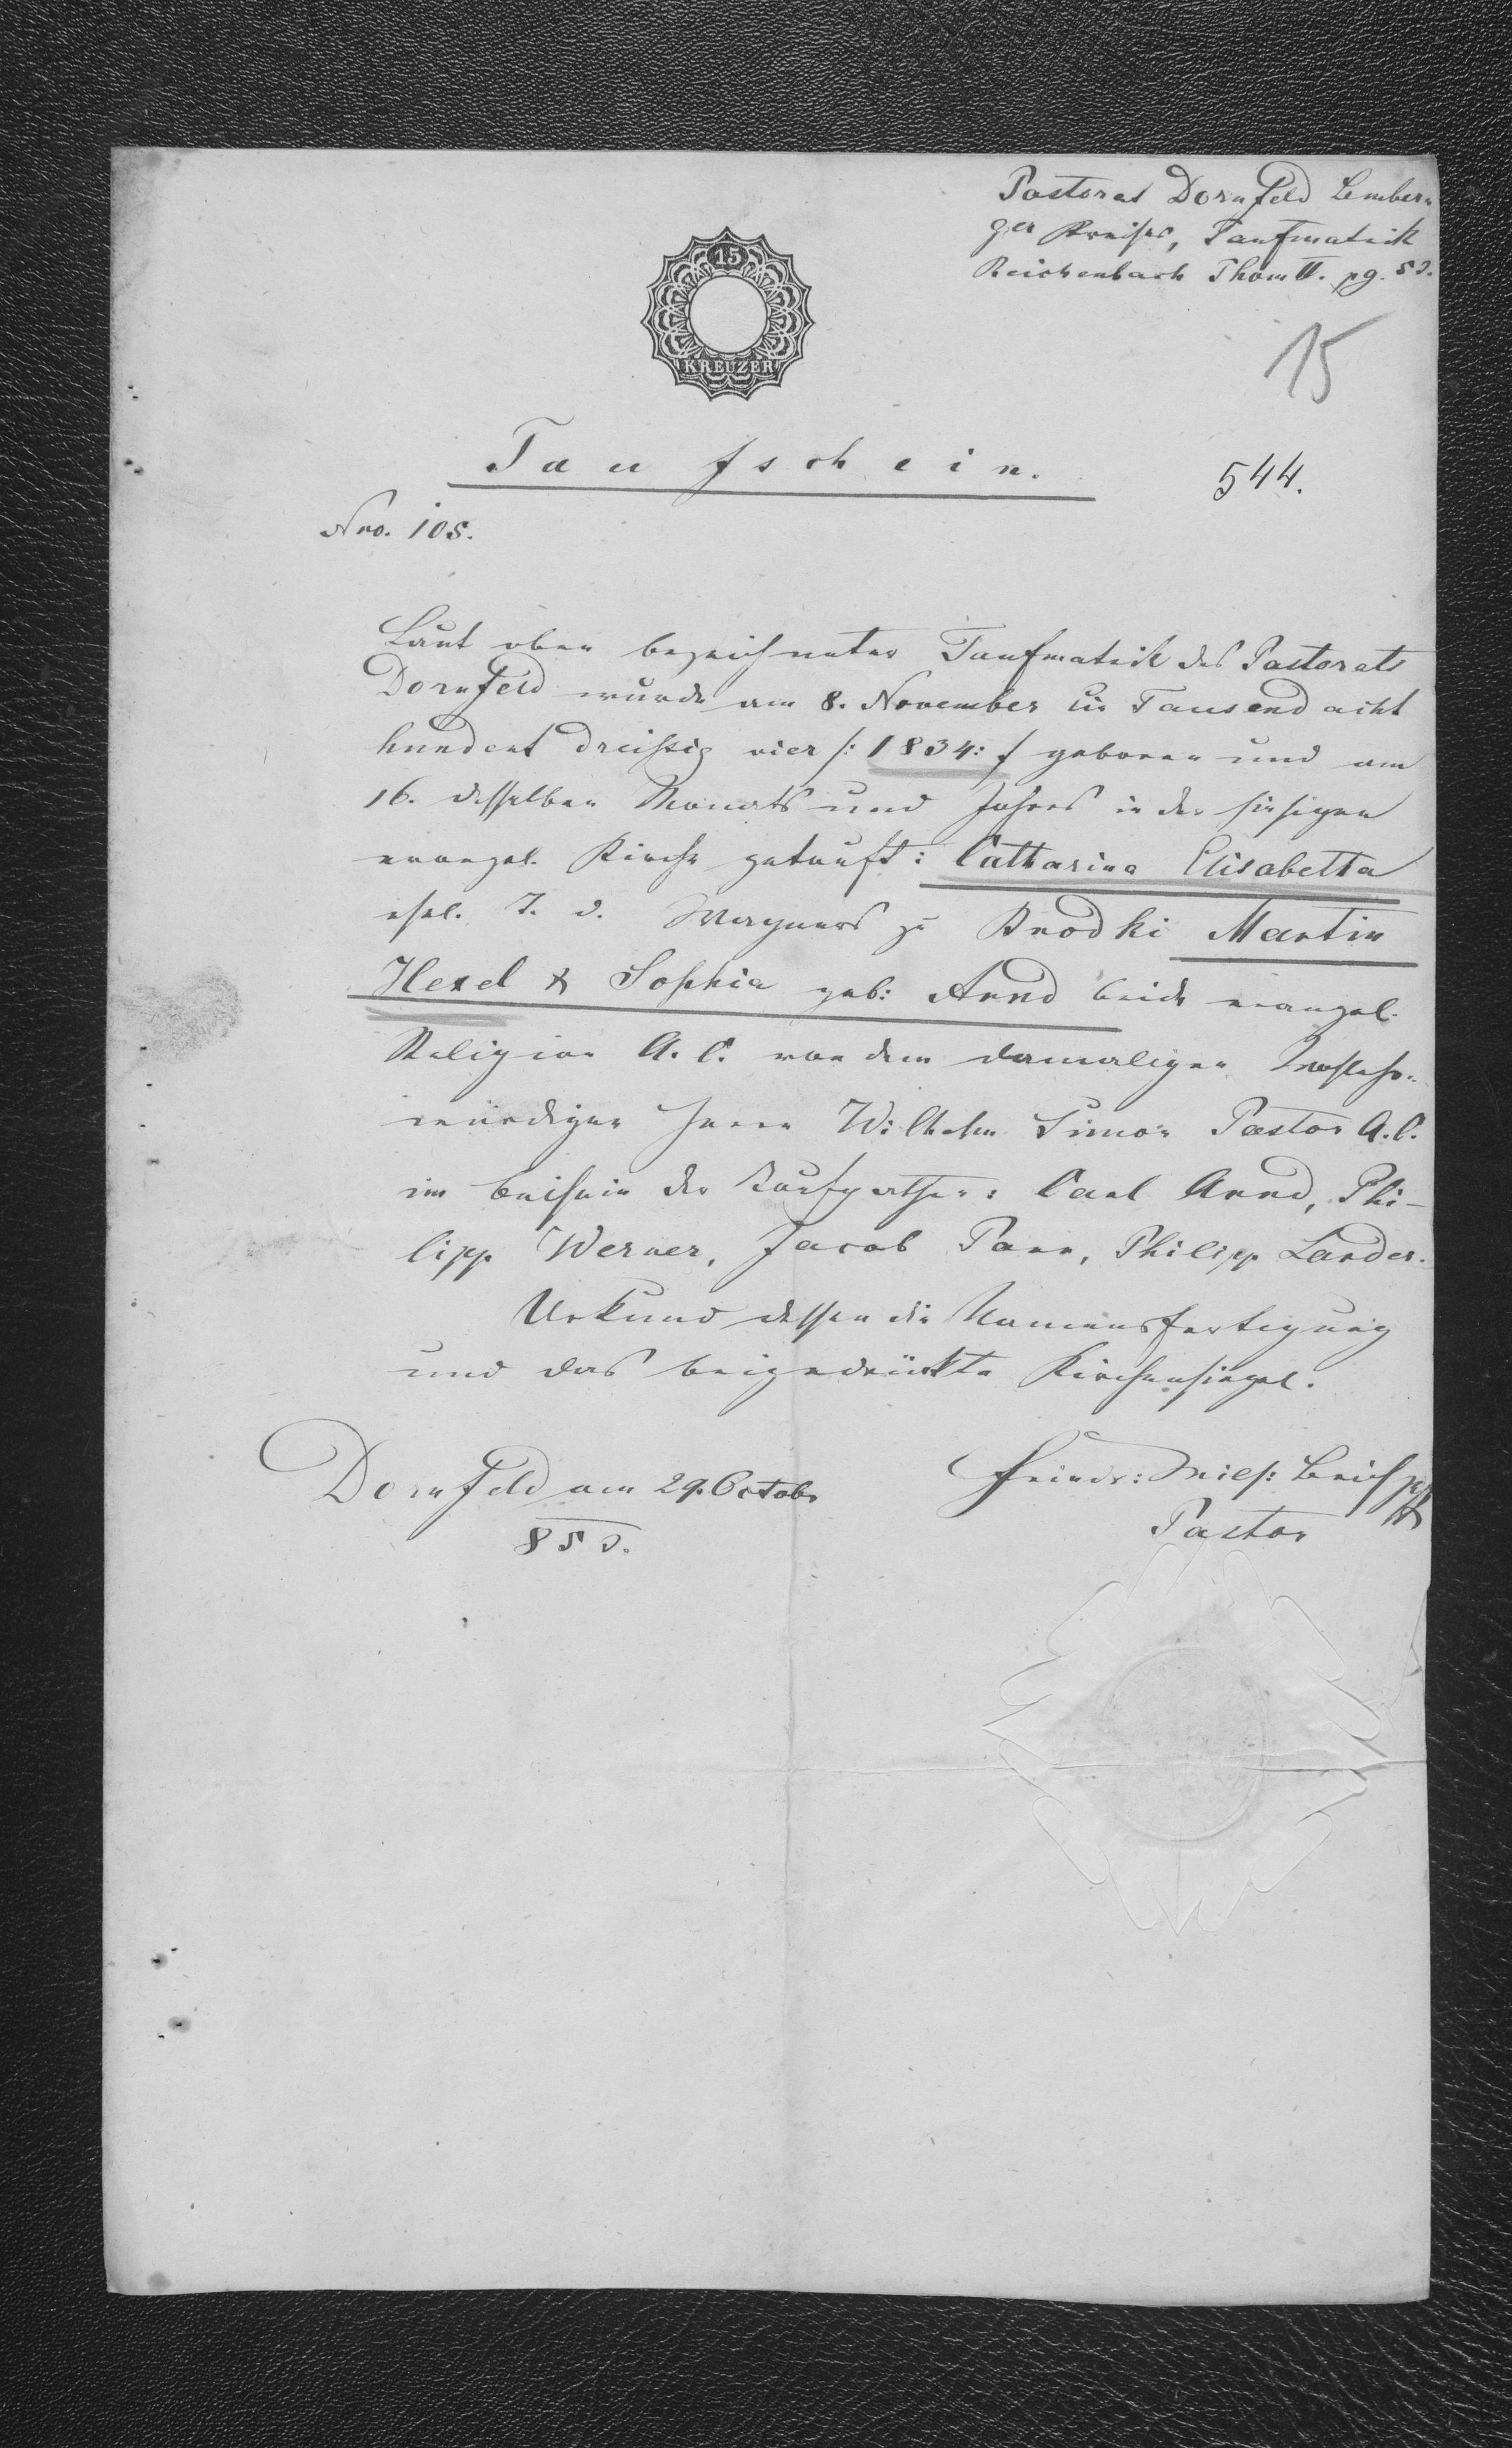 Pastorat Dornfeld Lember-
ger Kreises, Taufmatrik
Reichenbach Thom II. pg. 53.
15
KREUZER
15
Taufschein.
544.
Nro. 105.
Laut oben bezeichneter Taufmatrik des Pastorats
Dornfeld wurde am 8. November Ein Tausend acht
hundert dreißig vier /: 1834: / geboren und am
16. desselben Monats und Jahres in der hiesigen
evangel. Kirche getauft: Catharina Elisabetta
ehel. T. d. Wagners zu Brodki Martin
Hexel & Sophia geb: Arnd beide evangel.
Religion A. C. von dem damaligen Hochehr-
würdigen Herrn Wilhelm Simon Pastor A. C.
im Beisein der Taufpathen: Carl Arnd, Phi-
lipp Werner, Jacob Parr, Philipp Lander.
Urkund dessen die Namensfertigung
und das beigedrückte Kirchensiegel.
Dornfeld am 29. Octobr
Friedr: Wilh:
853.
Pastor